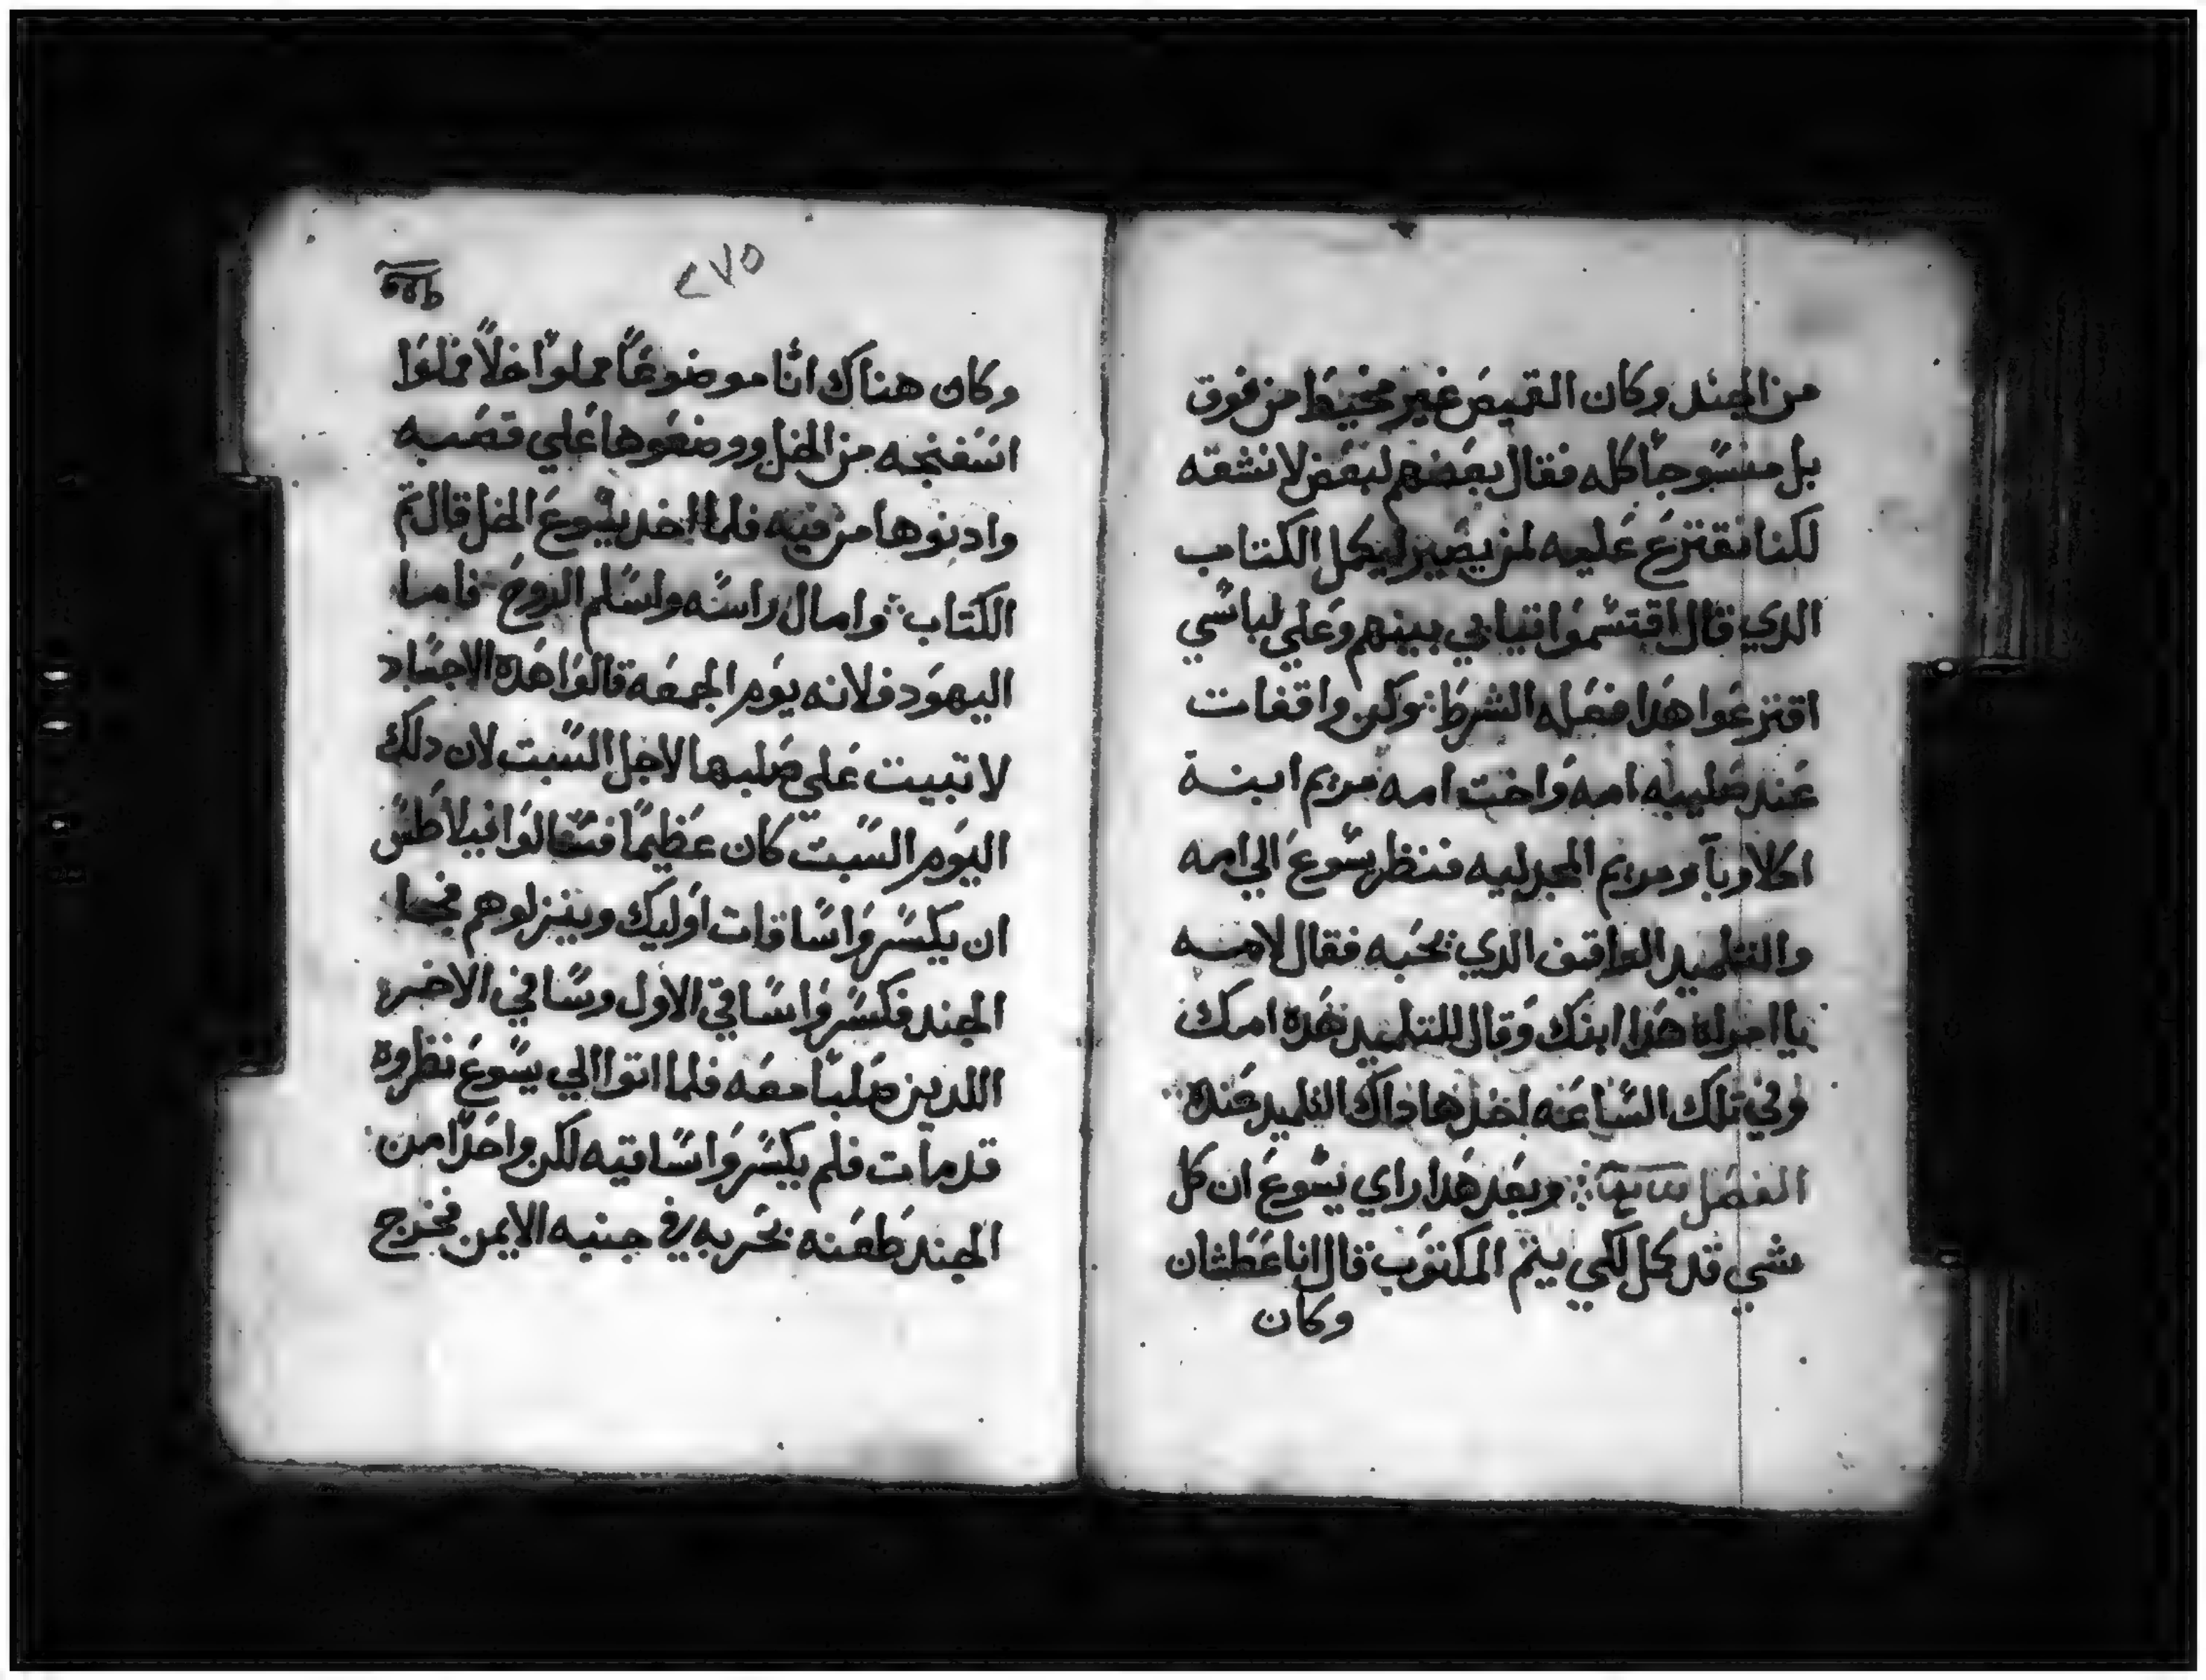 من الجند وكان القميص غير مخيط من فوق
بل منسوجا كله فقال بعضهم لبعض لا نشقه
لكنا نقترع عليه لمن يصير ليكمل الكتاب
الدي قال اقتسموا تيابي بينهم وعلي لباسي
اقترعوا هدا فعله الشرط وكن واقفات
عند صليبه امه واخت امه مريم ابنة
اكلاوبا ومريم المجدليه فنظر يسوع الي امه
والتلميد الواقف الدي يحبه فقال لامه
يا امراه هدا ابنك وقال للتلميد هده امك
وفي تلك الساعه اخدها داك التلميد عنده
الفصل وبعد هدا راي يسوع ان كل
شي قد كمل لكي يتم المكتوب قال انا عطشان
وكان
٢٧٥
وكان هناك انا موضوعا مملوا خلا فملوا
اسفنجه من الخل ووضعوها علي قصبه
وادنوها من فيه فلما اخد يسوع الخل قال تم
الكتاب وامال راسه واسلم الروح فاما
اليهود فلانه يوم الجمعه قالوا هده الاجساد
لا تبيت علي صلبها لاجل السبت لان دلك
اليوم السبت كان عظيما فسالوا فيلاطس
ان يكسروا ساقات اوليك وينزلوهم فجا
الجند فكسروا ساقي الاول وساقي الاخر
اللدين صلبا معه فلما اتوا الي يسوع نظروه
قد مات فلم يكسروا ساقيه لكن واحدا من
الجند طعنه بحربه في جنبه الايمن فخرج